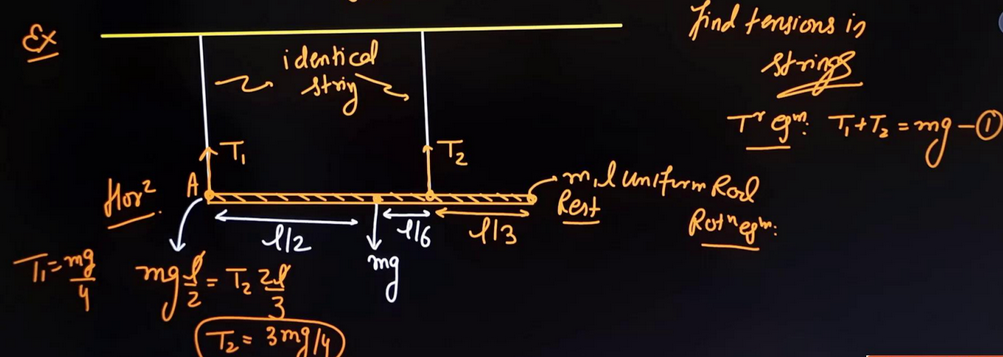 Ex
identical
string
find tensions in
strings
Tʳ eqᵐ: T₁+T₂ = mg -①
T₁
T₂
Horᶻ
A
m, l uniform Rod
Rest
Rotⁿ eqᵐ:
l/2
l/6
l/3
mg
T₁ = mg/4
mg l/2 = T₂ 2l/3
T₂ = 3mg/4